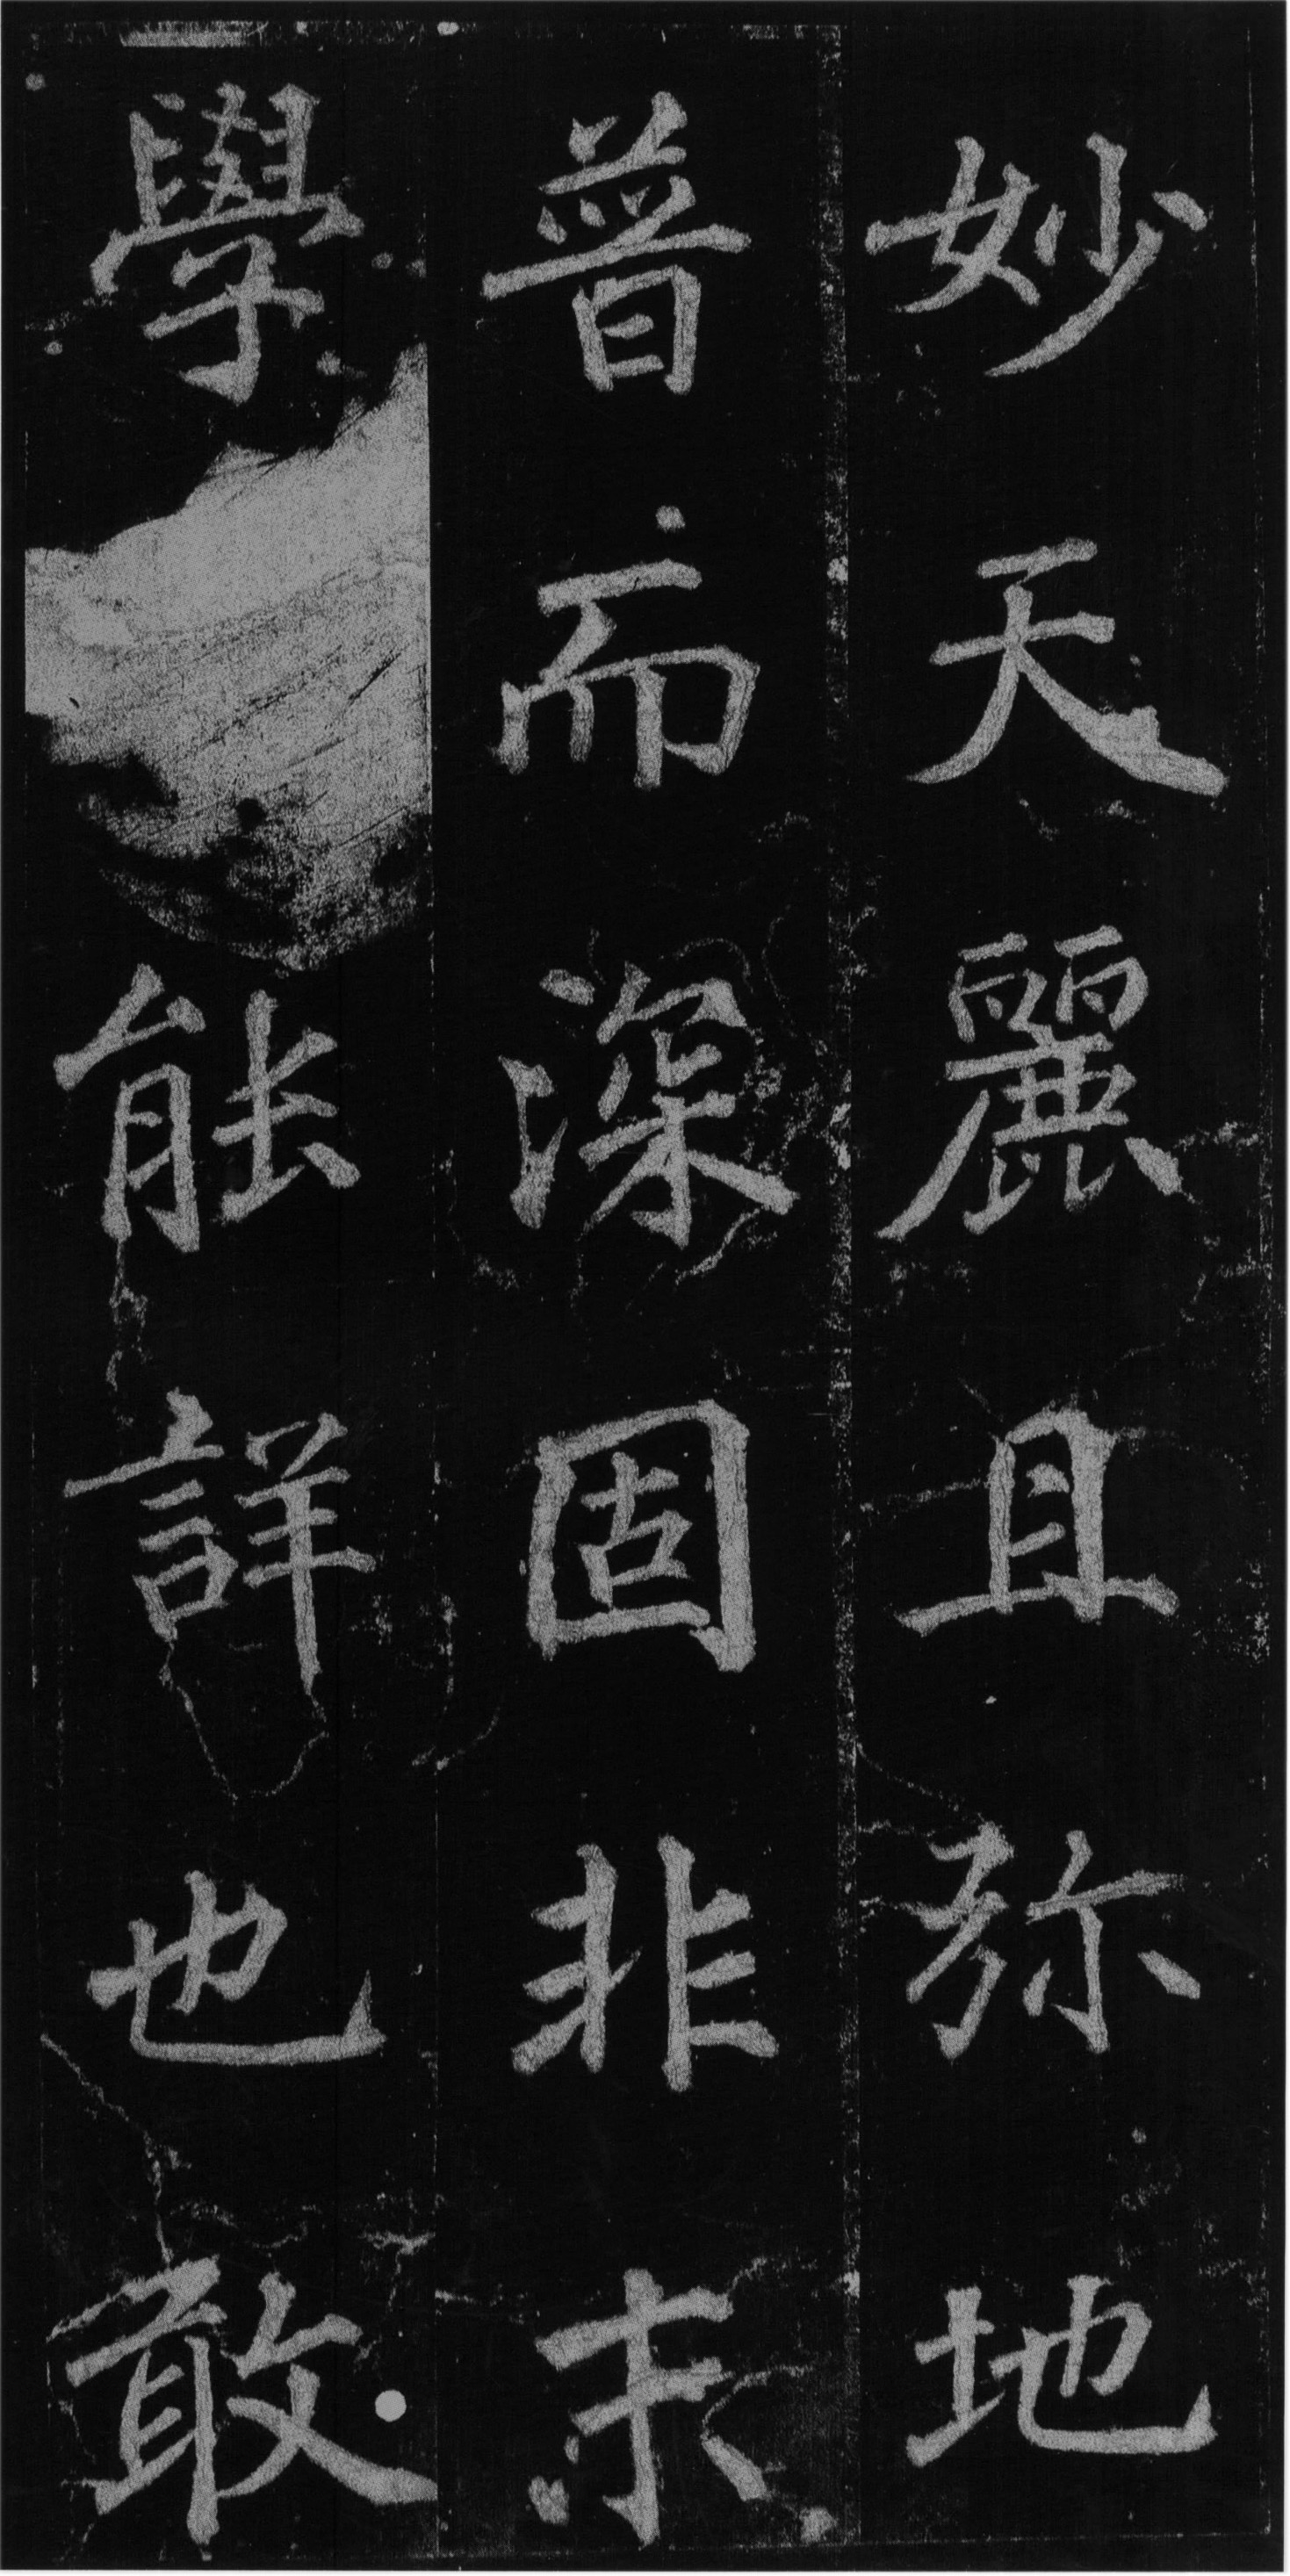 妙天麗且弥地
普而深固非未
學能詳也敢